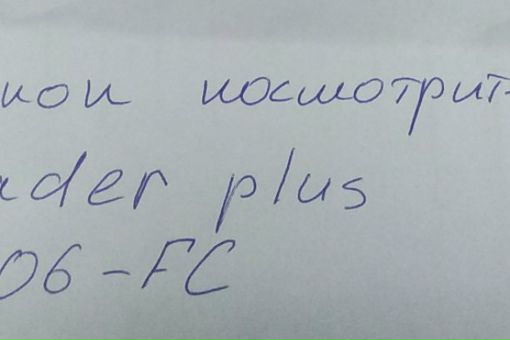 иои посмотрит
ader plus
06-FC